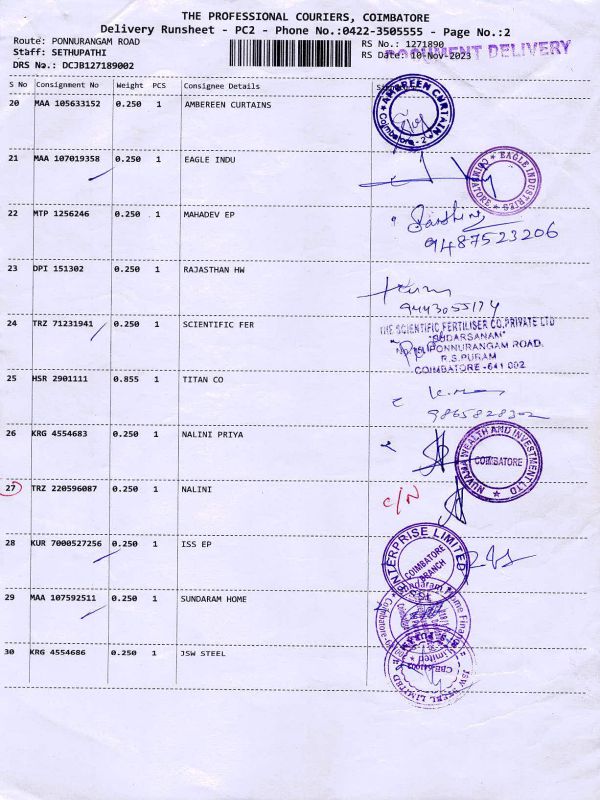 THE PROFESSIONAL COURIERS, COIMBATORE
Delivery Runsheet - PC2 - Phone No.:0422-3505555 - Page No.:2
Route: PONNURANGAM ROAD
RS No.: 1271890
Staff: SETHUPATHI
RS Date: 10-Nov-2023
DOCUMENT DELIVERY
DRS No.: DCJB127189002
S No Consignment No Weight PCS Consignee Details
20 MAA 105633152 0.250 1 AMBEREEN CURTAINS
AMBEREEN CURTAIN
Coimbatore-2
21 MAA 107019358 0.250 1 EAGLE INDU
EAGLE INDUSTRIES
COIMBATORE
22 MTP 1256246 0.250 1 MAHADEV EP
9487523206
23 DPI 151302 0.250 1 RAJASTHAN HW
9443055174
24 TRZ 71231941 0.250 1 SCIENTIFIC FER
THE SCIENTIFIC FERTILISER CO.PRIVATE LTD
"SUDARSANAM"
PONNURANGAM ROAD,
R.S.PURAM
COIMBATORE-641 002
25 HSR 2901111 0.855 1 TITAN CO
9865828302
26 KRG 4554683 0.250 1 NALINI PRIYA
NUVAMA WEALTH AND INVESTMENT LTD
COIMBATORE
27 TRZ 220596087 0.250 1 NALINI
C/N
28 KUR 7000527256 0.250 1 ISS EP
ENTERPRISE LIMITED
COIMBATORE
BRANCH
29 MAA 107592511 0.250 1 SUNDARAM HOME
Sundaram Home Finance
Limited
30 KRG 4554686 0.250 1 JSW STEEL
JSW STEEL LIMITED